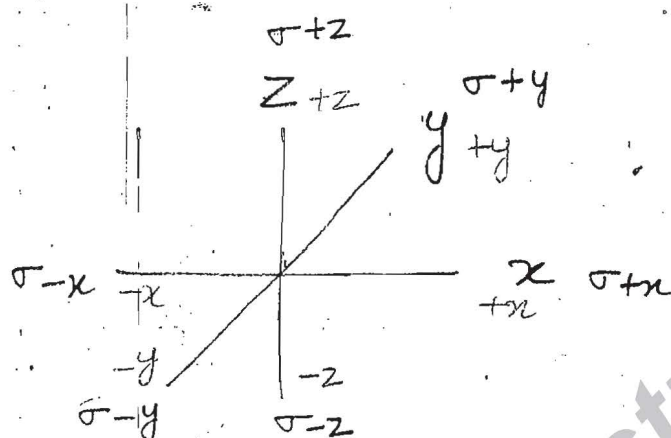 σ+z
z +z
σ+y
y +y
σ-x
-x
x σ+x
+x
-y
σ-y
-z
σ-z